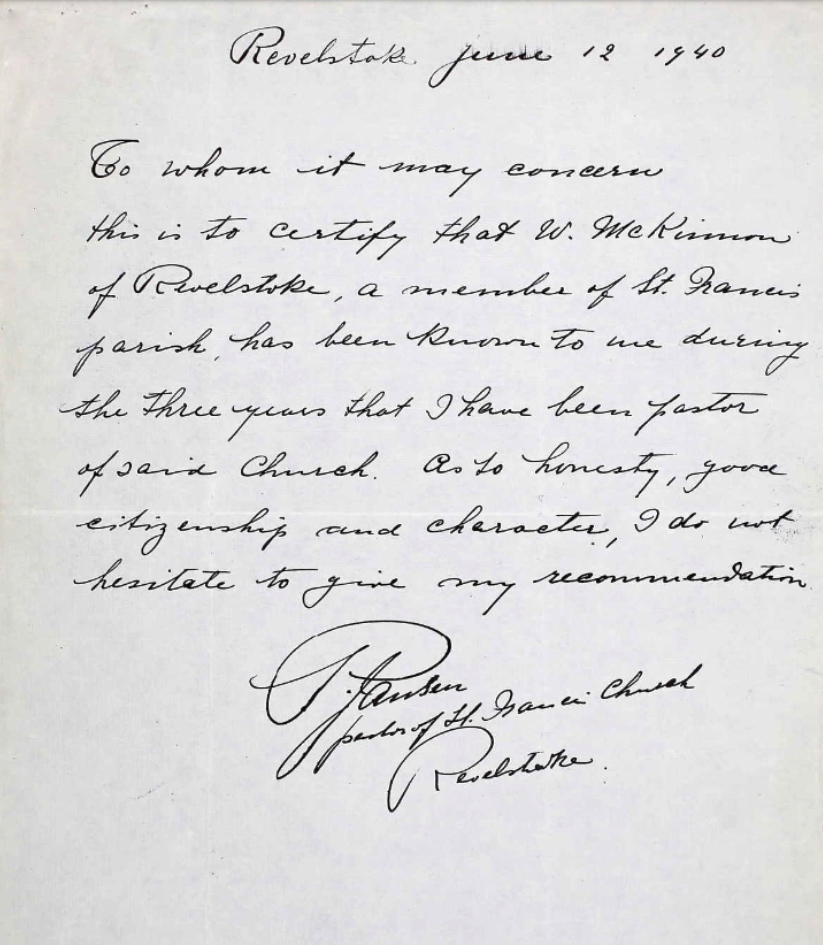 Revelstoke June 12 1940
To whom it may concern
this is to certify that W. McKinnon
of Revelstoke, a member of St. Francis
parish, has been known to me during
the three years that I have been pastor
of said Church. As to honesty, good
citizenship and character, I do not
hesitate to give my recommendation
Jansen
pastor of St. Francis Church
Revelstoke.